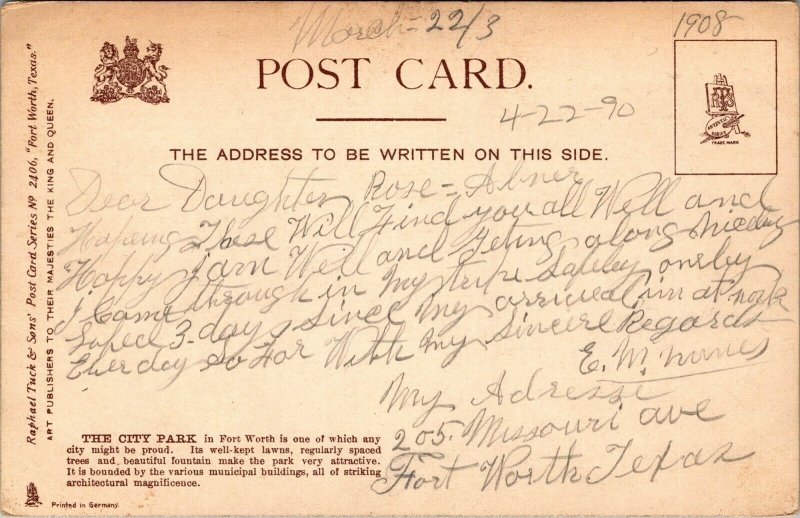 March - 22/3
1908
POST CARD.
4-22-90
THE ADDRESS TO BE WRITTEN ON THIS SIDE.
RTS
TRADE MARK
Raphael Tuck & Sons' Post Card Series Nº 2406, "Fort Worth, Texas."
ART PUBLISHERS TO THEIR MAJESTIES THE KING AND QUEEN.
Dear Daughter Rose = Abner
Hopeing These Will Find you all Well and
Happy I am Well and Geting along Nicely
I Came through in My trip Safely only
3-days Since My arrival im at work
Ever day So Far With My Sincere Regards
E. M.
My Adress
205. Missouri ave
Fort Worth Texas
THE CITY PARK in Fort Worth is one of which any
city might be proud. Its well-kept lawns, regularly spaced
trees and beautiful fountain make the park very attractive.
It is bounded by the various municipal buildings, all of striking
architectural magnificence.
Printed in Germany.